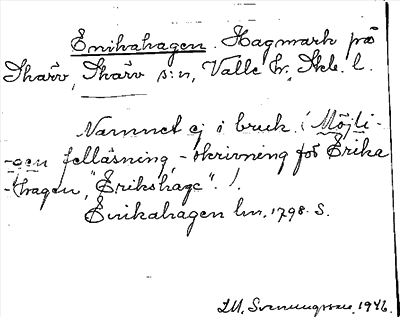 Enikahagen. Hagmark på
Skärv, Skärv s:n, Valle hr, Skb. l.
Namnet ej i bruk. (Möjli-
-gen felläsning, -skrivning för Erika
-hagen, "Erikshage".).
Enikahagen lm. 1798. S.
J.M. Svenungsson, 1946.